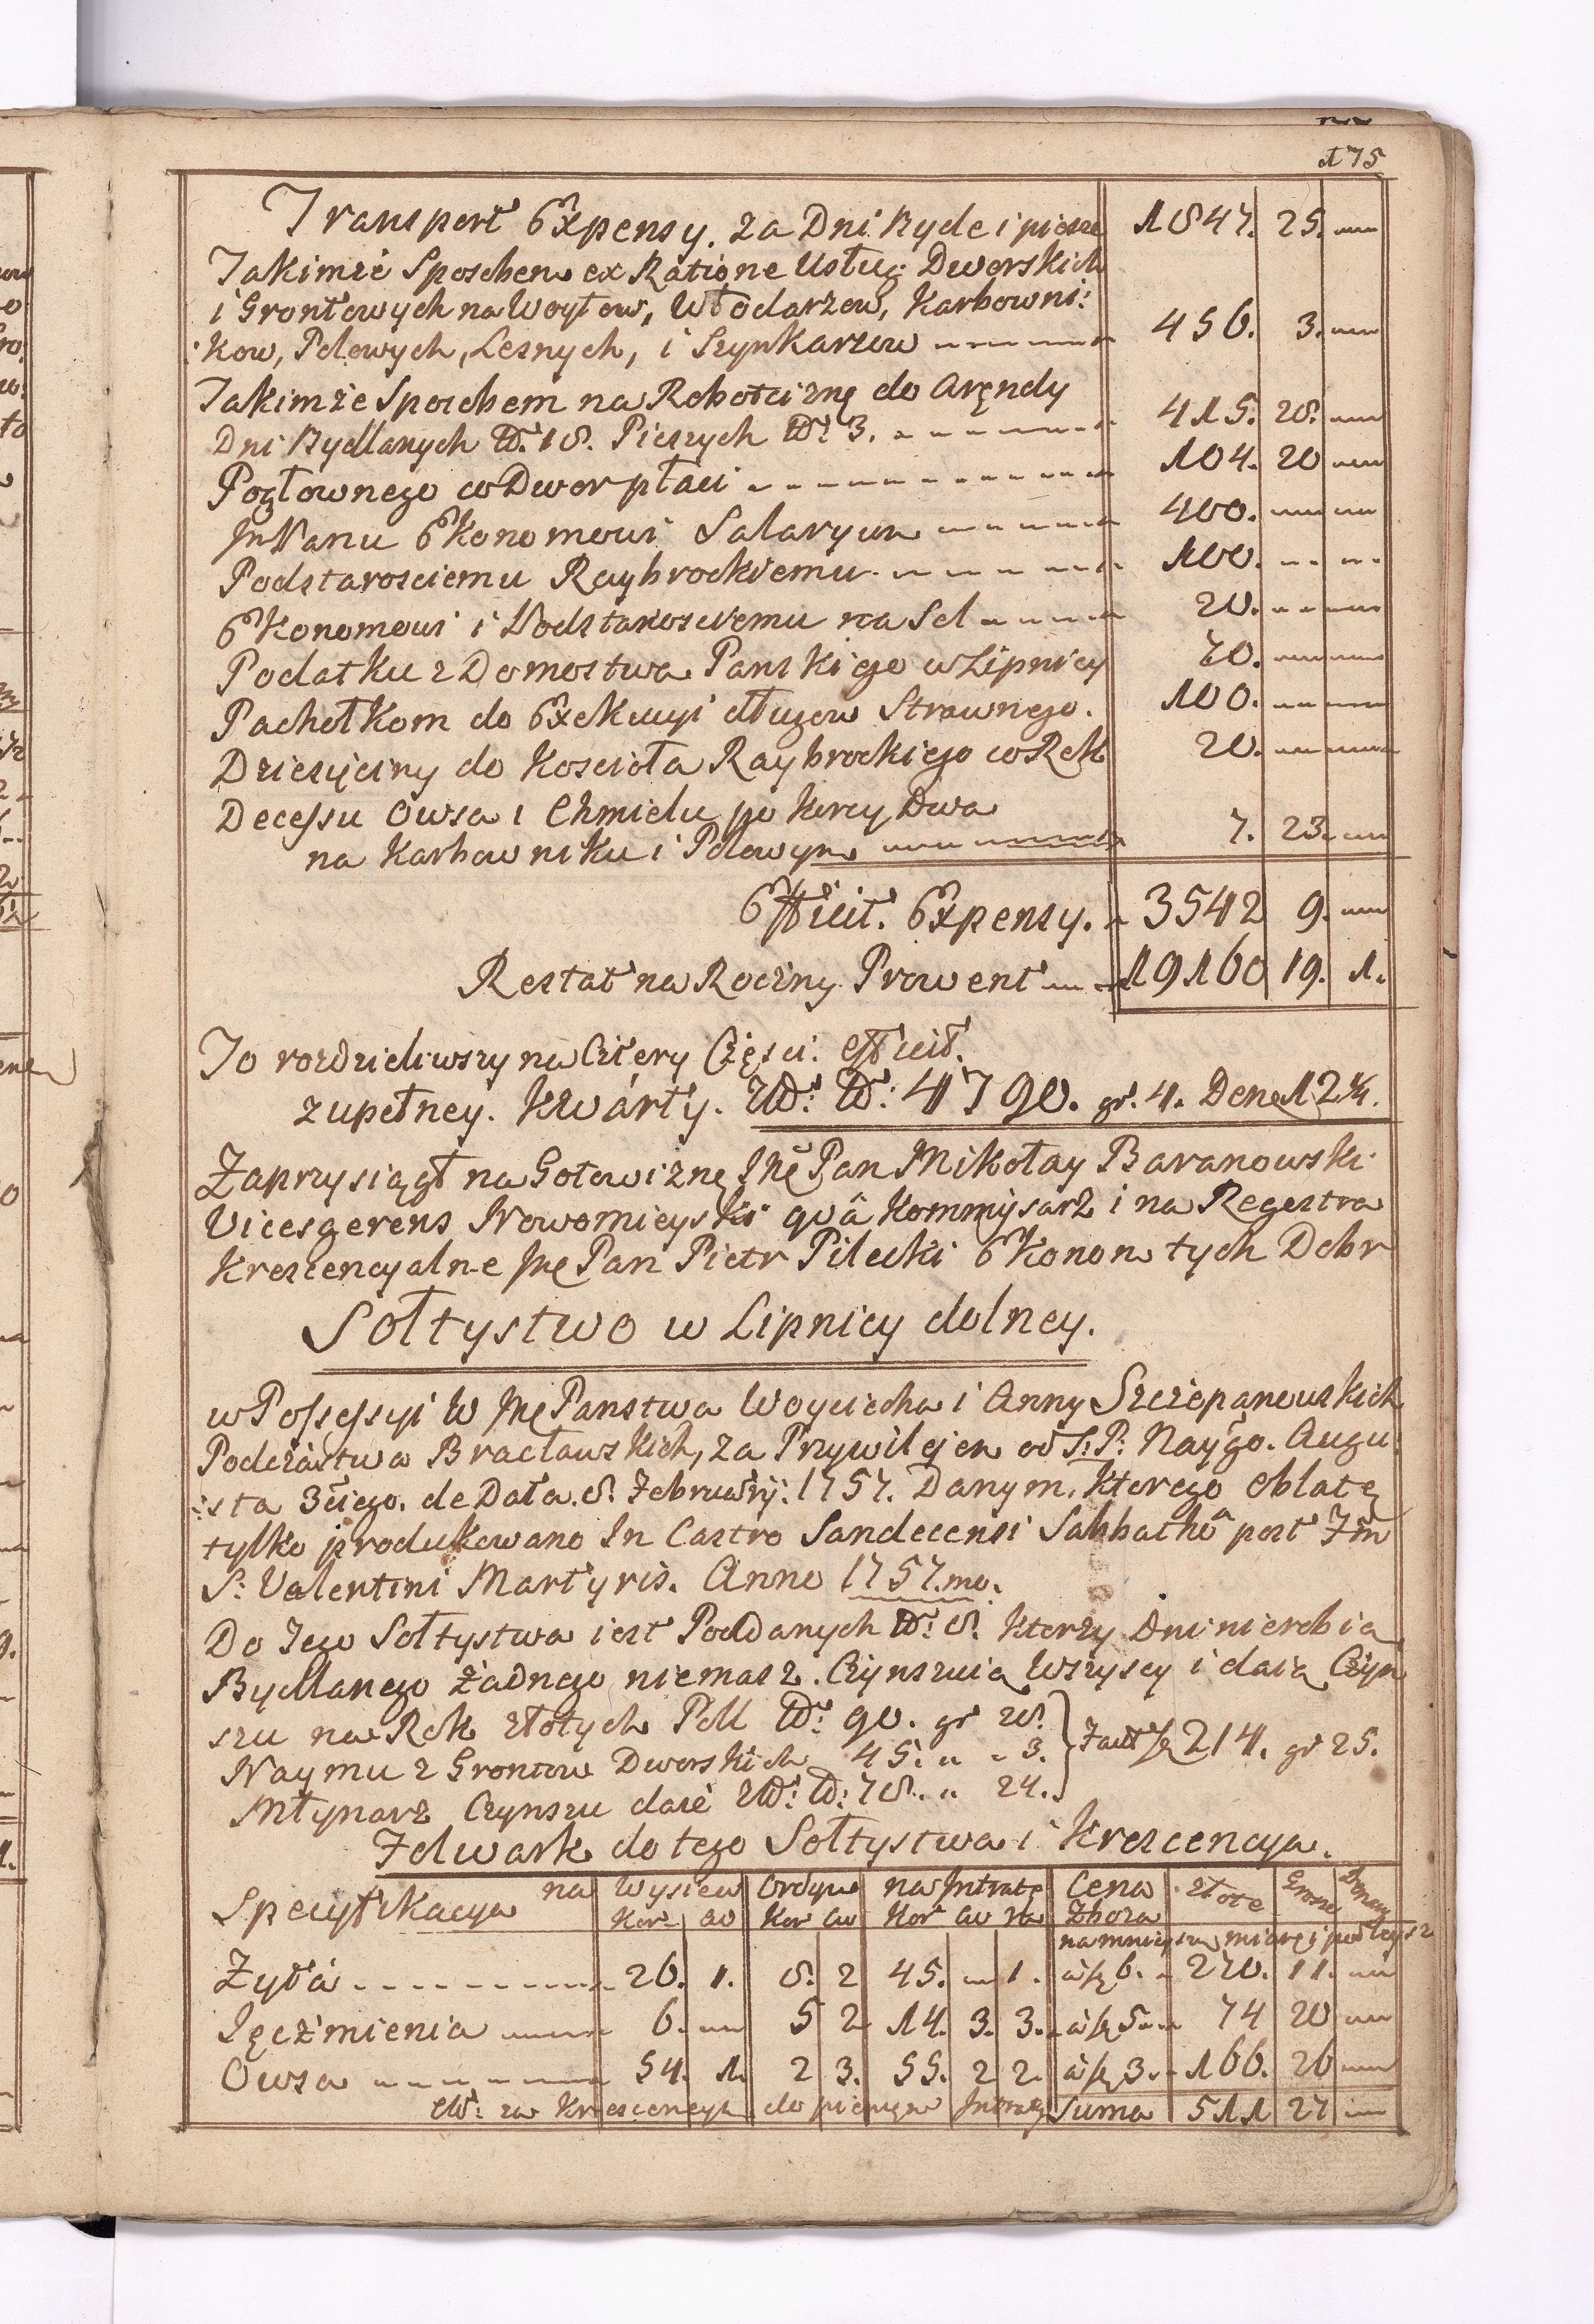 175
Transport Expensy. za Dni Bydle i piesze 1847. 25.
Takimże Sposobem ex Ratione Usług Dworskich
i Grontowych na Woytow, Włodarzow, Karbowni:
:kow, Polowych, Lesnych, i Szynkarzow 456. 3.
Takimże Sposobem na Robociznę do Aręndy
Dni Bydlanych N: 18. Pieszych N: 3. 415. 28.
Pogłownego co Dwor płaci 104. 20
Jm Panu Ekonomowi Salaryum 400.
Podstarosciemu Raybrockiemu 100.
Ekonomowi i Podstarosciemu na Sol 20.
Podatku z Domostwa Panskiego w Lipnicy 70.
Pachołkom do Exekucyi długow Strawnego. 100.
Dziesięciny do Koscioła Raybrockiego co Rok 20.
Decessu Owsa i Chmielu po Korcy Dwa
na Karbowniku i Polowym 7. 23.
Efficit. Expensy. 3542 9.
Restat na Roczny Prowent 19160 19. 1.
To rozdzieliwszy na Cztery Części. efficit.
zupełney. Kwarty. Zł: N: 4790. gr. 4. Den 12¼.
Zaprzysiągł na Gotowiznę Jmć Pan Mikołay Baranowski
Vicesgerens Nowomieyski qvâ Kommysarz i na Regestra
Krescencyalne Jmć Pan Piotr Pilecki Ekonom tych Dobr
Sołtystwo w Lipnicy dolney.
w Possessyi W Jmć Panstwa Woyciecha i Anny Szczepanowskich
Podczastwa Bracławskich, za Przywilejem od S: P: Nayg̃o. Augu
:sta 3ciego. de Data. 8. Februarij. 1757. Danym. Ktorego oblatę
tylko produkowano In Castro Sandecensi Sabbathô post Fm
S: Valentini Martyris. Anno 1757.mo.
Do Tego Sołtystwa iest Poddanych N: 8. Ktorzy Dni nierobią
Bydlanego żadnego niemasz. Czynszuią Wszyscy i daią Czyn
szu na Rok złotych Poll N: 90. gr 28.
Naymu z Grontow Dworskich 45. „ „ 3. Facit f 214. gr 25.
Młynarz Czynszu daie Zł: N: 78. „ 24.
Folwark do tego Sołtystwa i Krescencya.
Specyfikacya na Wysiew Ordyn na Intratę Cena złote Grosze Denary
Kor: ćw Kor ćw Kor ćw Zboża
na mnieyszą miarę i podleysz
Zyta 26. 1. 8. 2 45. 1. à f 6. 270. 11.
Ięczmienia 6. 5 2 14. 3. 3. à f 5. 74 20
Owsa 54. 1. 2 3. 55. 2 2. à f 3. 166. 26
za Krescencyą do pienęzney Intraty Suma 511 27